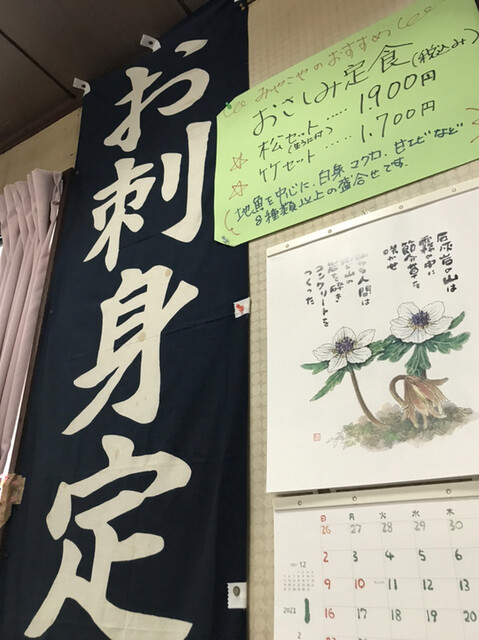 お刺身定
みやこやのおすすめ
おさしみ定食(税込み)
松セット ..... 1900円
(生うに付)
竹セット ...... 1.700円
地魚を中心に、白身 マグロ、甘エビなど
8種類以上の盛合せです。
石灰岩の山は
霧の中に
節分草を
咲かせ
人間は
山の
岩を砕き
コンクリートを
つくった
日 月 火 水 木
26 27 28 29 30
2 3 4 5 6
12
9 10 11 12 13
2022 1
16 17 18 19 20
2